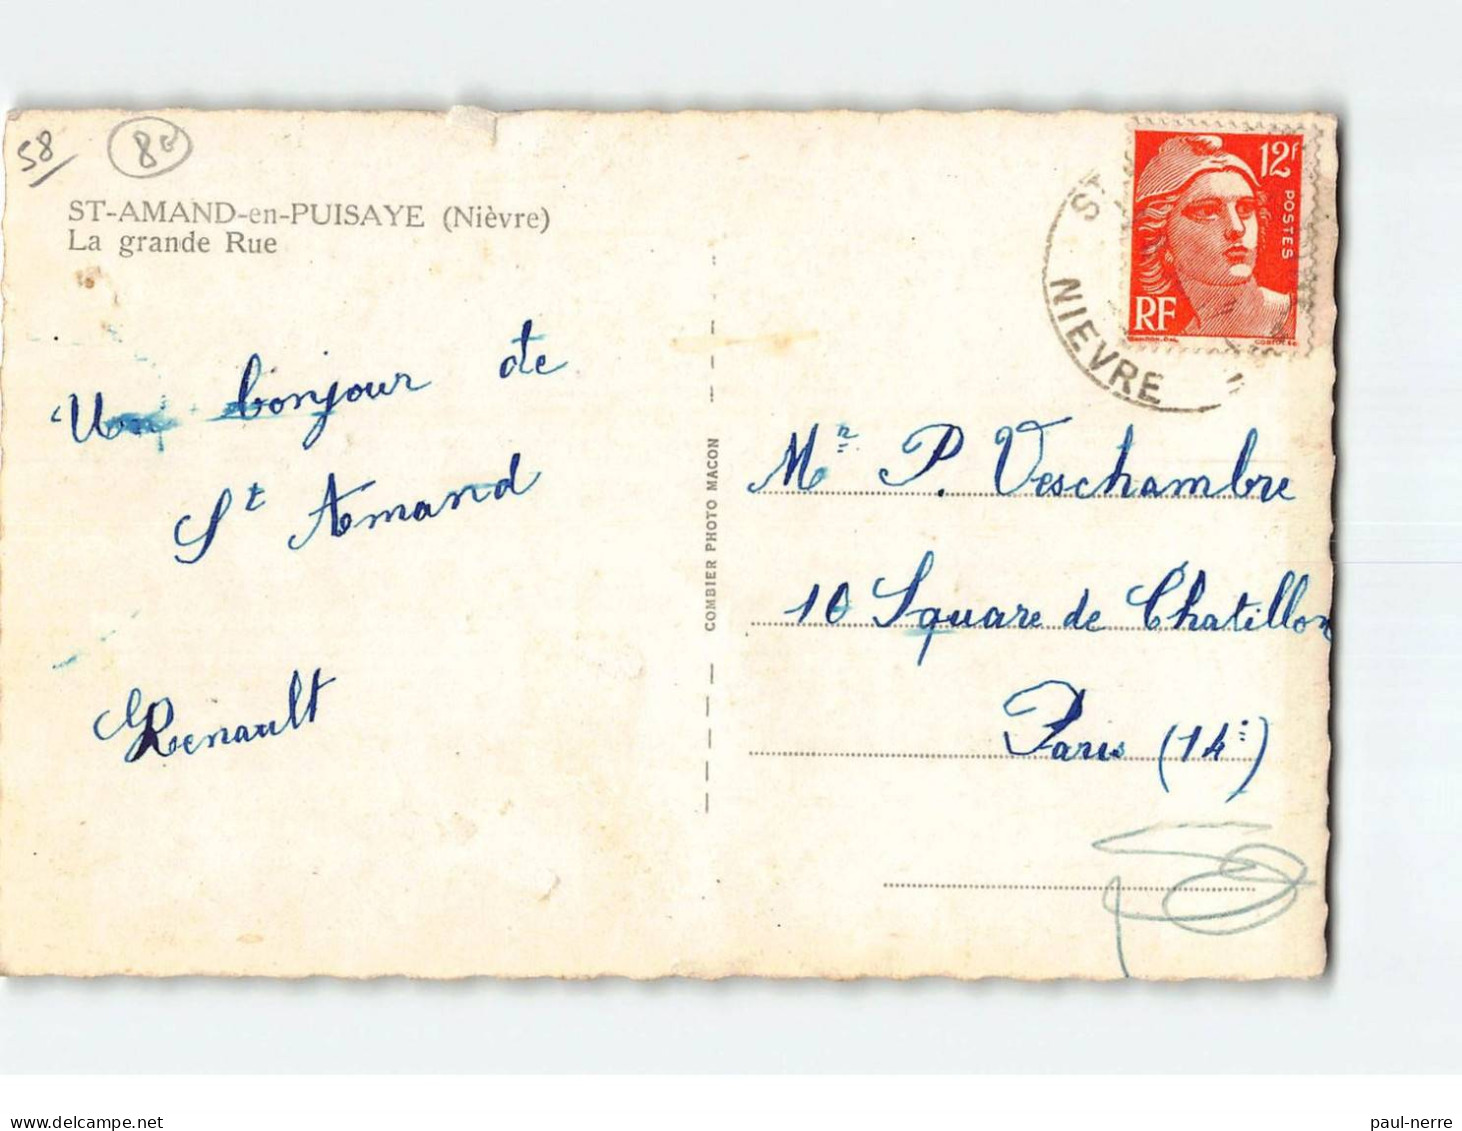 58
8€
ST-AMAND-en-PUISAYE (Nièvre)
La grande Rue
Un bonjour de
St Amand
Renault
COMBIER PHOTO MACON
12F
POSTES
RF
ST
NIEVRE
Mr P. Veschambre
10 Square de Chatillon
Paris (14e)
paul-nerre